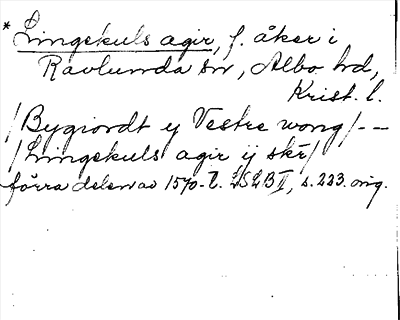 * Lingekuls agir, f. åker i
Ravlunda sn, Albo hd,
Krist. l.
/Bygiordt ij Vestre wong/ --
/Lingekuls agir ij skr/
förra delen av 1570-t. LSLB II, s. 223. orig.